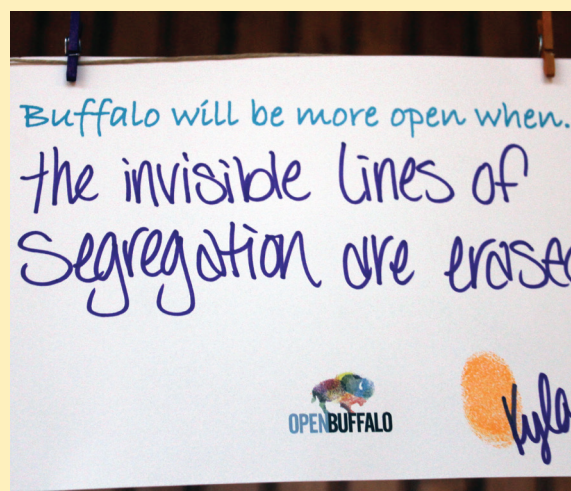 Buffalo will be more open when.
the invisible lines of
segregation are erased
OPENBUFFALO
Kyla